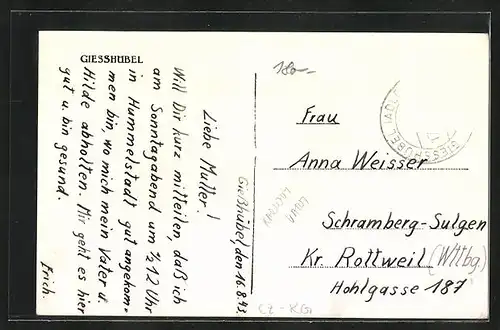 GIESSHÜBEL
Gießhübel, den 16.8.43.
Liebe Mutter!
Will Dir kurz mitteilen, daß ich
am Sonntagabend um ½12 Uhr
in Hummelstadt gut angekom-
men bin, wo mich mein Vater u.
Hilde abholten. Mir geht es hier
gut u. bin gesund.
Erich.
180-
GIESSHÜBEL (ADL
Frau
Anna Weisser
Schramberg-Sulgen
Kr. Rottweil (Wttbg.)
Hohlgasse 187
CZ-KG